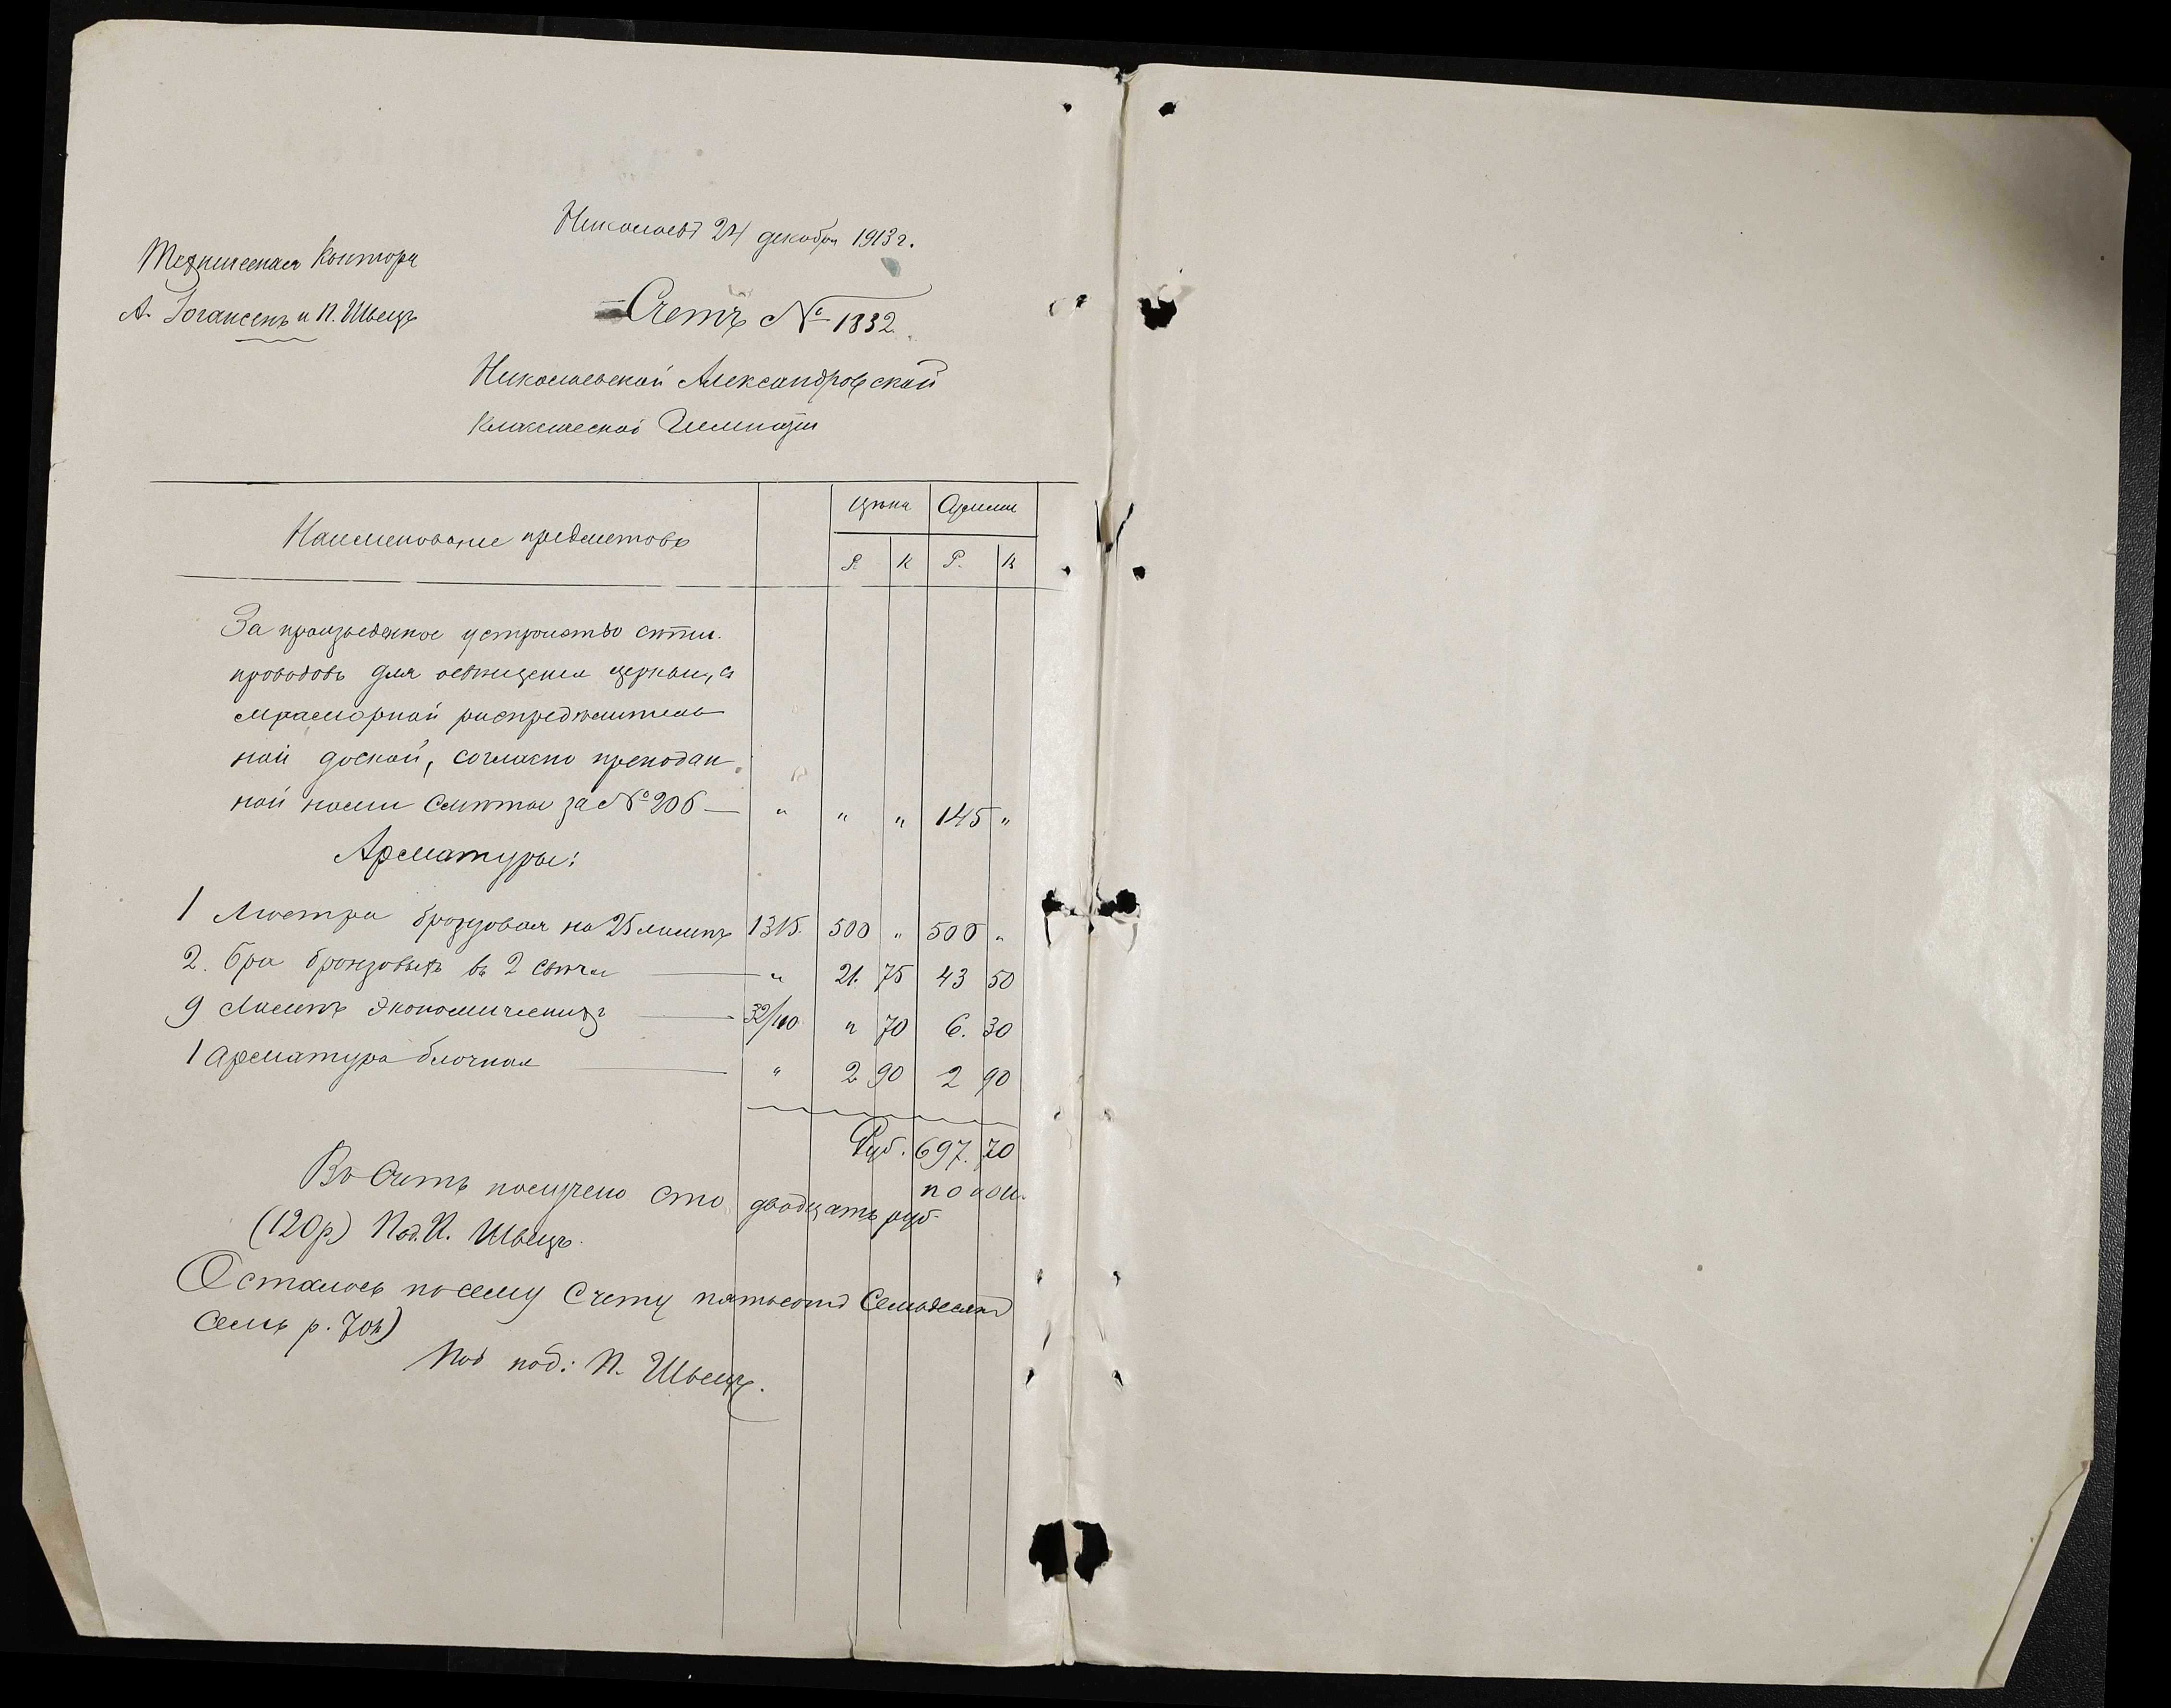 Николаевъ 24 декабря 1913 г.
Техническая Контора
А. Іогансенъ и П. Швецъ
Счетъ № 1832.
Николаевской Александровской
Классической Гимназіи
Наименованіе предметовъ
Цѣна Сумма
Р. К Р. К
За произведенное устройство сѣти
проводовъ для освѣщенія церкви, съ
мраморной распредѣлитель
ной доской, согласно преподан
ной нами смѣты за № 206 — " " " 145 "
Арматуры:
1 Люстра бронзовая на 25 лампъ 1315. 500 " 500 "
2. Бра бронзовыхъ въ 2 свѣчи — " 21. 75 43 50
9 Лампъ экономическихъ — 32/110 " 70 6. 30
1 Арматура блочная — " 2 90 2 90
Руб. 697. 70
Въ Счетъ получено сто двадцать руб.
(120 р) Под. П. Швецъ.
Осталось по сему Счету пятьсотъ Семьдесятъ
Семь р. 70 к)
под: П. Швецъ.